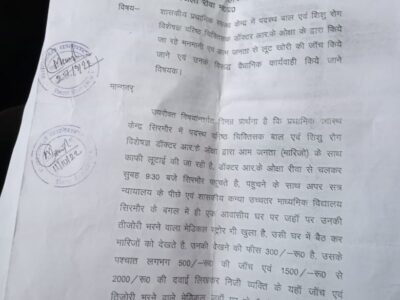 जिला रीवा म०प्र०
विषय– शासकीय प्राथमिक स्वास्थ्य केन्द्र में पदस्थ बाल एवं शिशु रोग
विशेषज्ञ वरिष्ठ चिकित्सक डॉक्टर आर.के ओझा के द्वारा किये
जा रहे मनमानी एवं आम जनता से लूट खोरी की जाँच किये
जाने एवं उनके विरूद्ध वैधानिक कार्यवाही किये जाने
विषयक।
मान्यवर,
उपरोक्त विषयान्तर्गत विनम्र प्रार्थना है कि प्राथमिक स्वास्थ
केन्द्र सिरमौर में पदस्थ वरिष्ठ चिकित्सक बाल एवं शिशु रोग
विशेषज्ञ डॉक्टर आर.के ओझा द्वारा आम जनता (मारिजो) के साथ
काफी लूटाई की जा रही है, डॉक्टर आर.के ओझा रीवा से चलकर
सुबह 9:30 बजे सिरमौर पहुचते है, पहुचने के साथ अपर सत्र
न्यायालय के पीछे एवं शासकीय कन्या उच्चतर माध्यमिक विद्यालय
सिरमौर के बगल में ही एक आवासीय घर पर जहाँ पर उनकी
तीजोरी भरने वाला मेडिकल स्ट्रोर भी खुला है, उसी घर में बैठ कर
मारिजों को देखते है, उनकी देखने की फीस 300/–रू० है, उसके
पश्चात लगभग 500/–रू० की जाँच एवं 1500/–रू० से
2000/रू० की दवाई लिखकर निजी व्यक्ति के यहाँ जाँच एवं
तिजोरी भरने वाले मेडिकल